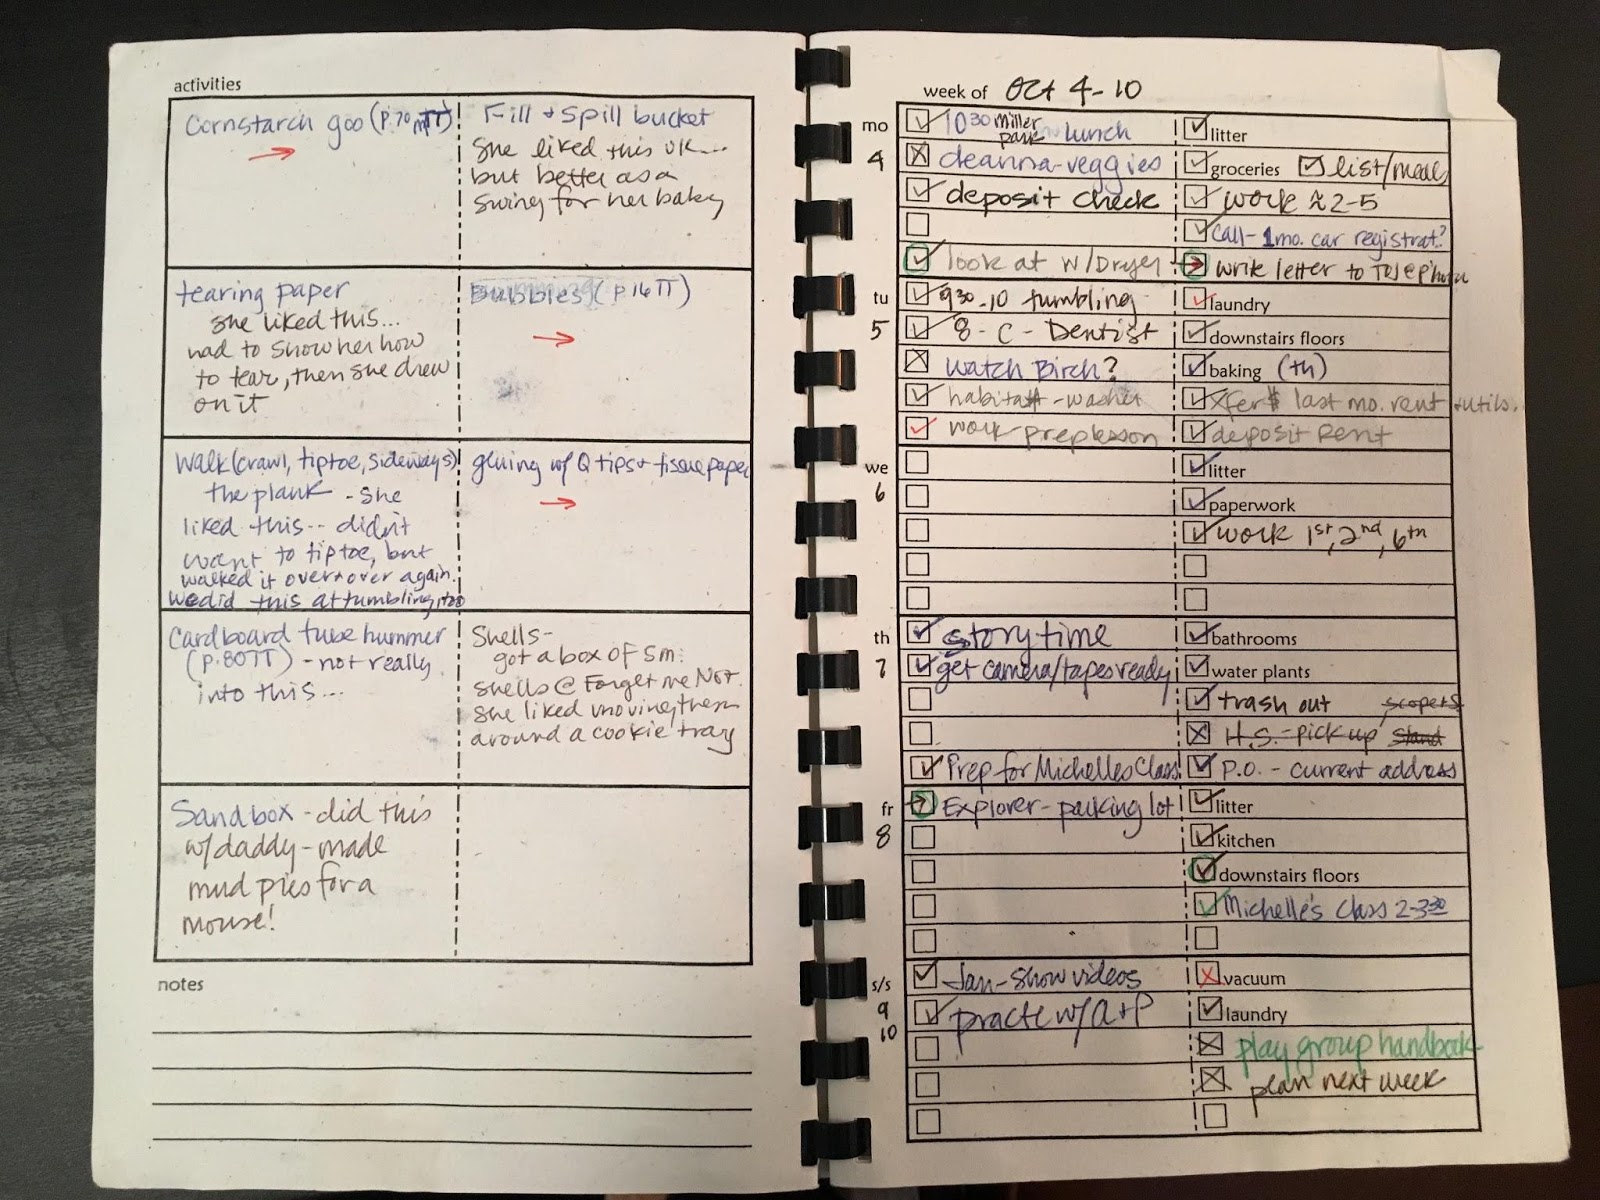 activities
Cornstarch goo (p.70 TT)
→
Fill & Spill bucket
She liked this OK...
but better as a
swing for her baby
tearing paper
she liked this...
had to show her how
to tear, then she drew
on it
Bubbles (p.16 TT)
→
Walk (crawl, tiptoe, sideways)
the plank - she
liked this... didn't
want to tiptoe, but
walked it over + over again.
We did this at tumbling, too
gluing w/ Q tips + tissue paper
→
Cardboard tube hummer
(p.80TT) - not really
into this...
Shells-
got a box of sm.
shells @ Forget me Not.
She liked moving them
around a cookie tray
Sandbox - did this
w/daddy - made
mud pies for a
mouse!
notes
week of Oct 4-10
mo
4
10 30 Miller park lunch
deanna-veggies
deposit check
look at W/Dryer
litter
groceries list/meals
work ≈ 2-5
Call - 1 mo. car registrat.?
→ write letter to
tu
5
9 30-10 tumbling
8 - C - Dentist
Watch Birch?
habitat - washer
work prep lesson
laundry
downstairs floors
baking (th)
Xfer $ last mo. rent + utils.
deposit Rent
we
6
litter
paperwork
work 1st, 2nd, 6th
th
7
story time
get camera/tapes ready
Prep for Michelles Class
bathrooms
water plants
trash out
H.S. - pick up stand
P.O. - current address
fr
8
→ Explorer - parking lot
litter
kitchen
downstairs floors
Michelle's Class 2-3 30
s/s
9
10
Jan - Show videos
practe w/ A + P
vacuum
laundry
play group handbook
plan next week